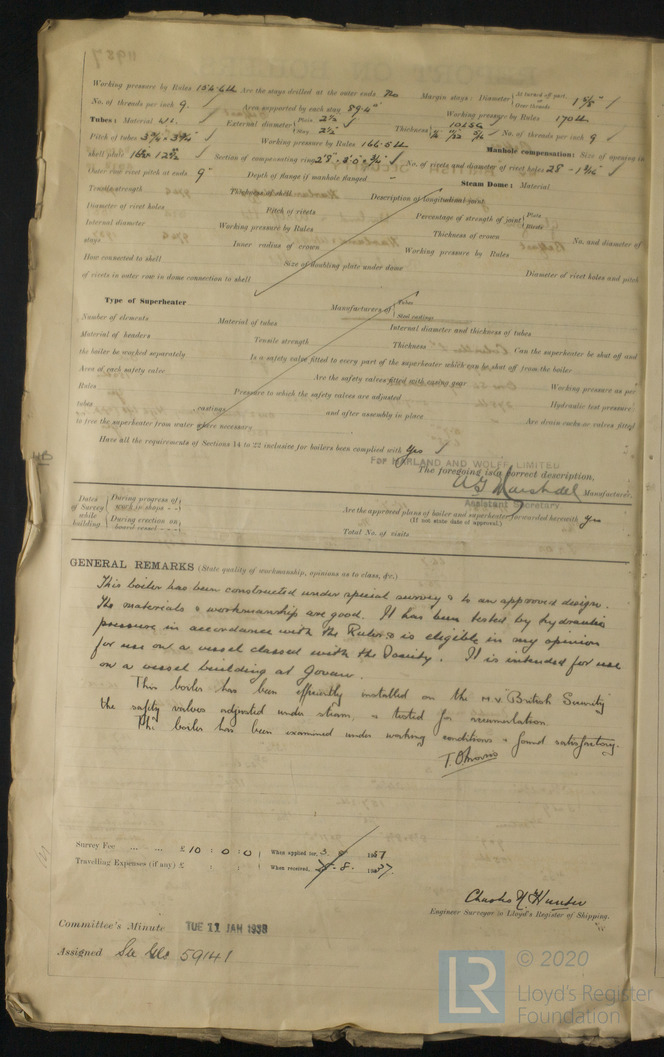 Working pressure by Rules 154.6 lb Are the stays drilled at the outer ends No Margin stays: Diameter { At turned off part, or Over threads 1 5/8" ✓
No. of threads per inch 9. ✓ Area supported by each stay 89.4" Working pressure by Rules 170 lb
Tubes: Material External diameter { Plain 2 1/2 Stay 2 1/2" ✓ Thickness No. of threads per inch 9 ✓
Pitch of tubes 3 3/4" × 3 3/4" ✓ Working pressure by Rules 166.5 lb Manhole compensation: Size of opening in
shell plate ✓ Section of compensating ring No. of rivets and diameter of rivet holes 28 -
Outer row rivet pitch at ends 9" Depth of flange if manhole flanged – Steam Dome: Material
Tensile strength Thickness of shell Description of longitudinal joint
Diameter of rivet holes Pitch of rivets Percentage of strength of joint { Plate Rivets
Internal diameter Working pressure by Rules Thickness of crown No. and diameter of
stays Inner radius of crown Working pressure by Rules
How connected to shell Size of doubling plate under dome Diameter of rivet holes and pitch
of rivets in outer row in dome connection to shell
Type of Superheater Manufacturers of { Tubes Steel castings
Number of elements Material of tubes Internal diameter and thickness of tubes
Material of headers Tensile strength Thickness Can the superheater be shut off and
the boiler be worked separately Is a safety valve fitted to every part of the superheater which can be shut off from the boiler
Area of each safety valve Are the safety valves fitted with easing gear Working pressure as per
Rules Pressure to which the safety valves are adjusted Hydraulic test pressure:
tubes castings and after assembly in place Are drain cocks or valves fitted
to free the superheater from water where necessary
Have all the requirements of Sections 14 to 22 inclusive for boilers been complied with Yes ✓
FOR HARLAND AND WOLFF, LIMITED
The foregoing is a correct description,
Marshall Manufacturer.
Assistant Secretary.
Dates of Survey while building. { During progress of work in shops - - During erection on board vessel - - -
Are the approved plans of boiler and superheater forwarded herewith Yes
(If not state date of approval.)
Total No. of visits
GENERAL REMARKS (State quality of workmanship, opinions as to class, &c.)
This boiler has been constructed under special survey & to an approved design.
The materials & workmanship are good. It has been tested by hydraulic
pressure in accordance with the Rules & is eligible in my opinion
for use on a vessel classed with the Society. It is intended for use
on a vessel building at Govan.
This boiler has been efficiently installed on the M.V. British Security
the safety valves adjusted under steam, & tested for accumulation.
The boiler has been examined under working conditions & found satisfactory.
Survey Fee ... ... £ 10 : 0 : 0 When applied for,
Travelling Expenses (if any) £ : : When received,
Charles Hunter
Engineer Surveyor to Lloyd's Register of Shipping.
Committee's Minute TUE 11 JAN 1938
Assigned See Gls 59141
LR © 2020
Lloyd's Register
Foundation